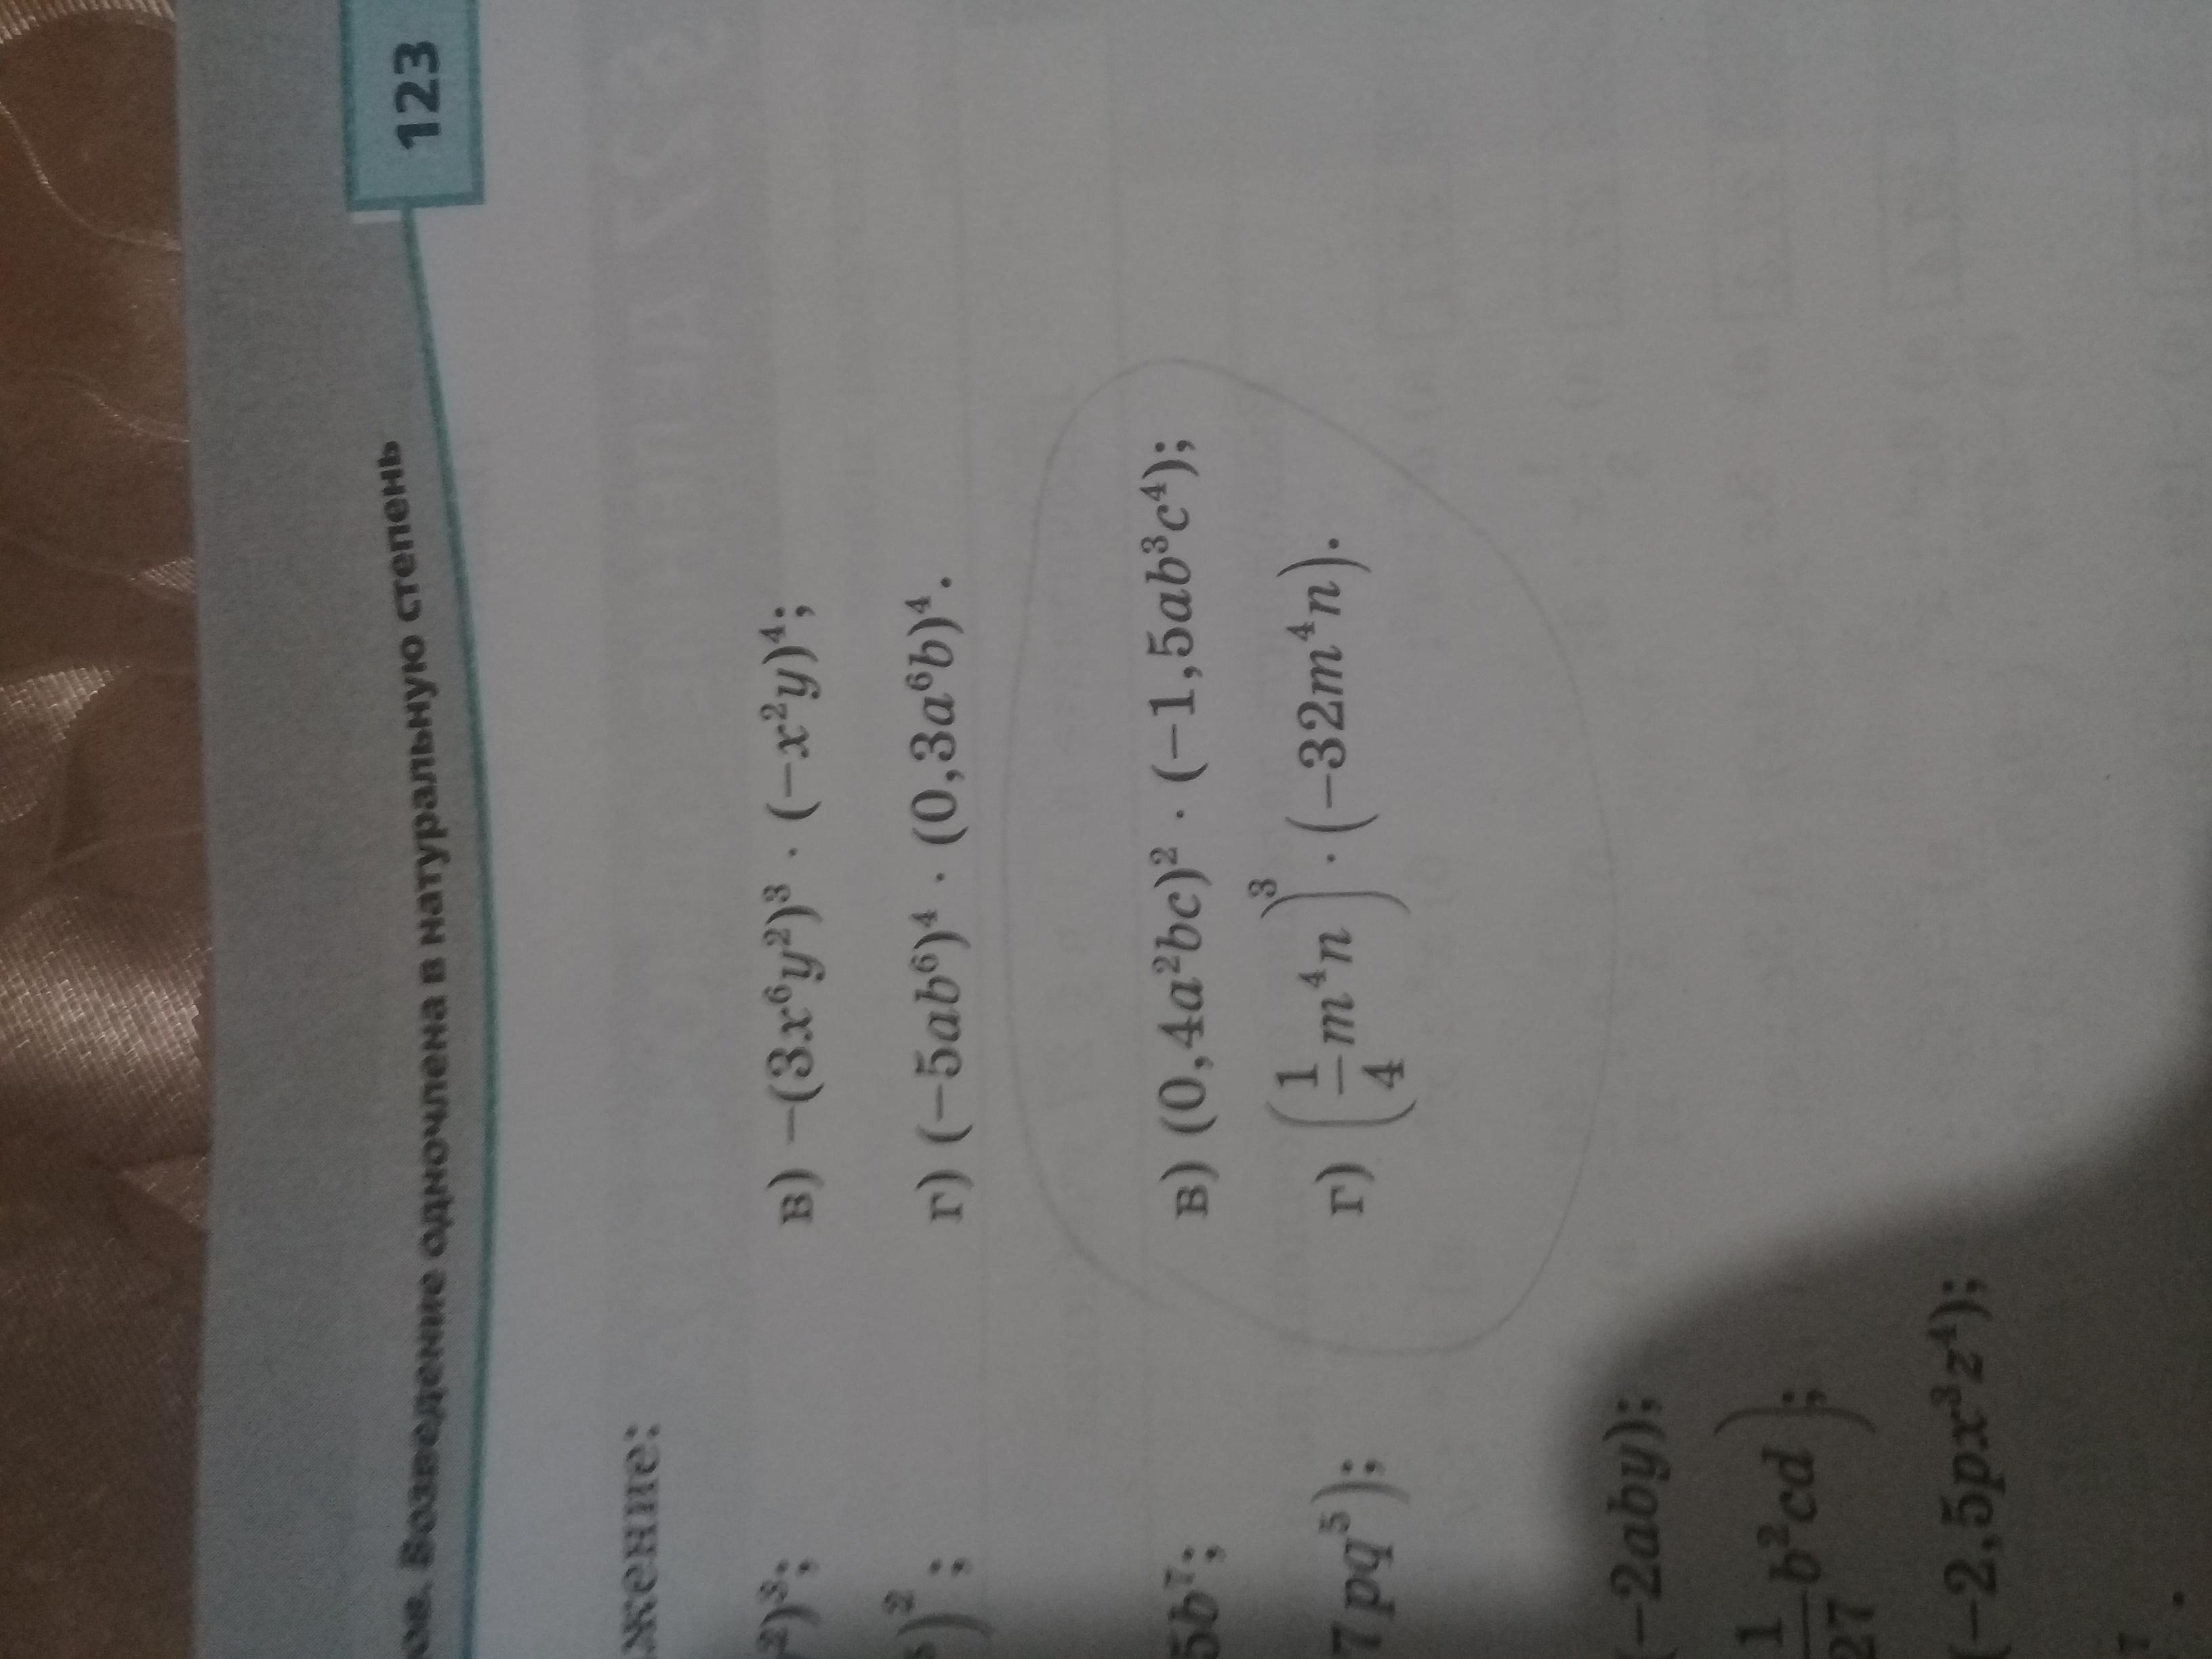 ов. Возведение одночлена в натуральную степень 123
жение:
²)³; в) −(3x⁶y²)³ · (−x²y)⁴;
)²; г) (−5ab⁶)⁴ · (0,3a⁶b)⁴.
5b⁷; в) (0,4a²bc)² · (−1,5ab³c⁴);
7pq⁵); г) (1/4 m⁴n)³ · (−32m⁴n).
(−2aby);
1/27 b²cd);
(−2,5px³z⁴);